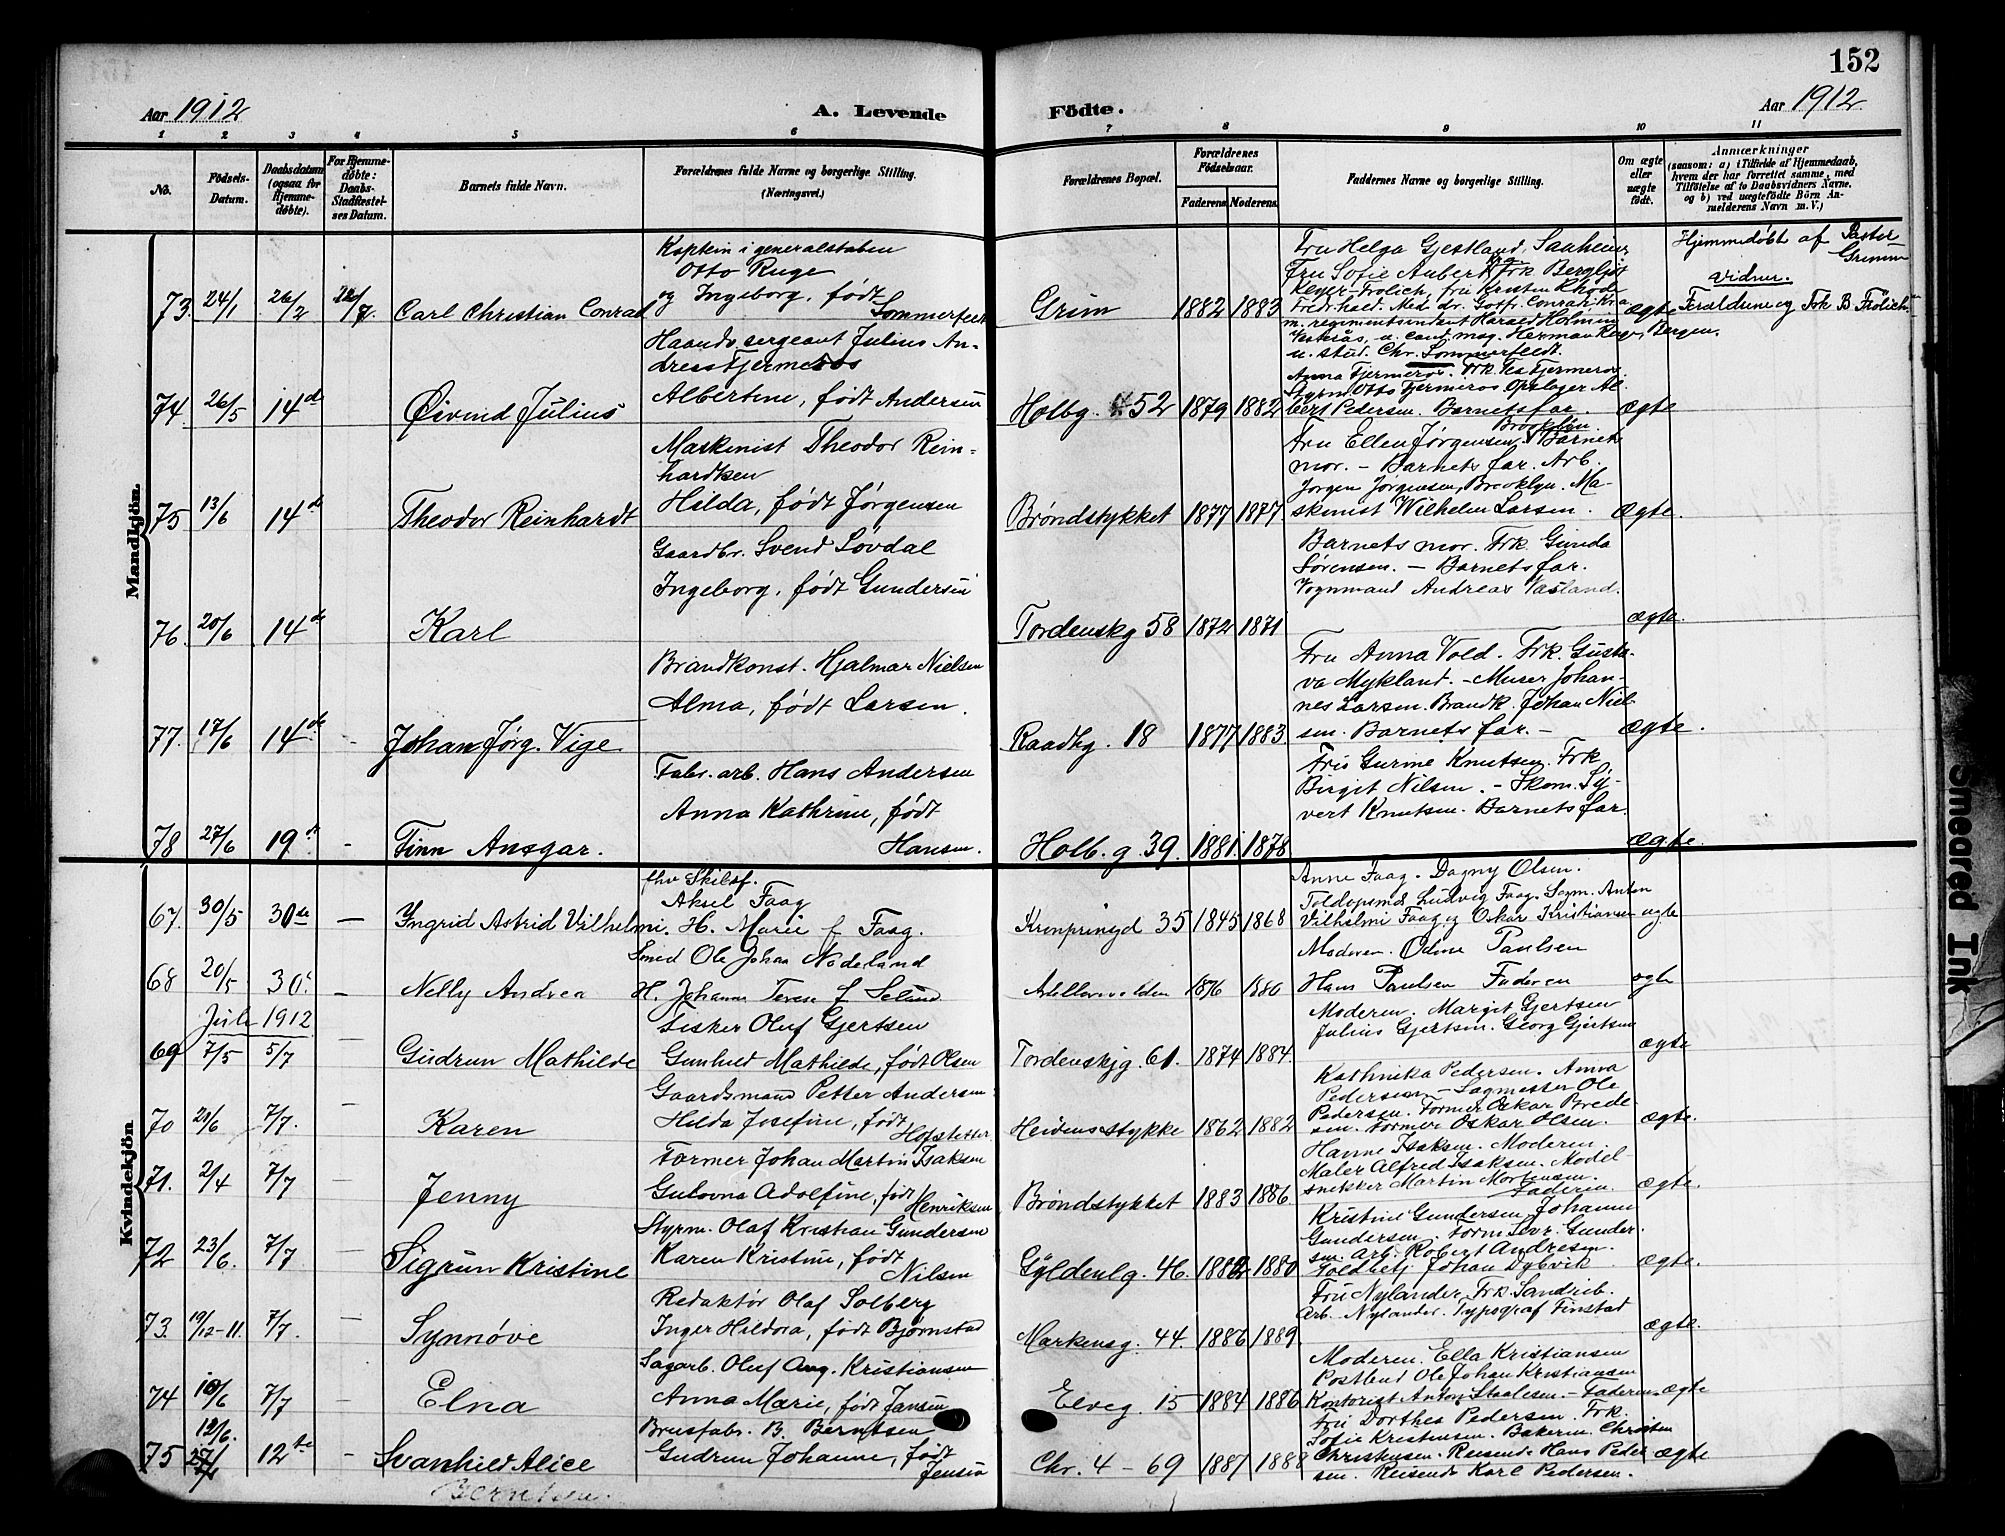 152
Aar 1912
A. Levende Födte.
Aar 1912
1 2 3 4 5 6 7 8 9 10 11
No.
Födsels-Datum.
Daabsdatum (ogsaa for Hjemmedøbte).
For Hjemmedøbte: Daabs-Stadfæstelses Datum.
Barnets fulde Navn.
Forældrenes fulde Navne og borgerlige Stilling. (Næringsvei.)
Forældrenes Bopæl.
Forældrenes Födselsaar.
Faderens. Moderens.
Faddernes Navne og borgerlige Stilling.
Om ægte eller uægte födt.
Anmærkninger (saasom: a) i Tilfælde af Hjemmedaab, hvem der har forrettet samme, med Tilföielse af to Daabsvidners Navne, og b) ved uægtefödte Börn Anmelderens Navn m. V.)
Mandkjön.
73. 24/1 26/2 Carl Christian Conrad
Kaptein i generalstaben
Otto Ruge
og Ingeborg, født
Sommerfelt
Grim 1882 1883
Fru Helga Gjestland, Sauheim
Fru Sofie Aubert Frk Bergljot
Keyer-Frølich, fru Kristen Rhode
u. stud. Chr. Sommerfeldt.
ægte
Hjemmedøbt af Pastor
Grimm
Vidner.
Forældrene og Frk B Frölich
Bergen.
74. 26/5 14de Øivind Julius
Haandv. sergeant Julius An-
dreas Fjermeros
Albertine, født Andersen
Holbg. 52 1879 1882
Anna Fjermeros. Frk. Tea Fjermeros
Styrm Otto Fjermeros Opsloger Al-
bert Pedersen. Barnets far.
ægte
75 13/6 14de Theodor Reinhardt
Maskinist Theodor Rein-
hardtsen
Hilda, født Jørgensen
Brøndstykket 1877 1877
Brooklyn.
Fru Ellen Jørgensen. Barnets
mor. – Barnets far. Arb.
Jørgen Jørgensen, Brooklyn. Ma-
skinist Wilhelm Larsen.
Ægte.
76. 20/6 14de Karl
Gaardbr. Svend Løvdal
Ingeborg, født Gundersen
Tordenskg 58 1872 1871
Barnets mor. Frk. Gunda
Sørensen. – Barnets far.
Vognmand Andreas Vasland.
ægte.
77. 17/6 14de - Johan Jørg. Vige
Brandkonst. Hjalmar Nielsen
Alma, født Larsen.
Raadhg. 18 1877 1883.
Fru Anna Vold. Frk. Gusta-
va Mykland. – Murer Johan-
nes Larsen. Brandk. Johan Niel-
sen. Barnets far. –
ægte.
78 27/6 19de - Finn Ansgar.
Fabr. arb. Hans Andersen
Anna Kathrine, født
Hansen.
Holb. g. 39. 1881. 1878
Fru Gurine Knutsen. Frk.
Birgit Nilsen. – Skom. Sy-
vert Knutsen. Barnets far.
ægte.
Kvindekjön
67. 30/5 30de — Yngrid Astrid Vilhelmi.
fhv Skibsf.
Aksel Faag
H. Marie f Faag.
Kronprinsgd 35 1845 1868
Anne Faag. Dagny Olsen.
Toldopsmd Ludvig Faag. Sagm. Anton
Vilhelmi Faag og Oskar Kristiansen
ægte
68 20/5 30. — Nelly Andrea
Smed Ole Johan Nodeland
H. Johanne Terese f Selund
1876 1880
Moderen. Odine Paulsen
Hans Paulsen Faderen
ægte
Juli 1912
69 7/5 5/7 — Gudrun Mathilde
Fisker Oluf Gjertsen
Gunhild Mathilde, født Olsen
Tordenskjg. 61. 1874 1884.
Moderen. Margit Gjertsen
Julius Gjertsen. Georg Gjertsen
ægte
70 7/7. — Karen
Gaardsmand Petter Andersen.
Hilda Josefine, født
Hofstetter
Heivensstykke 1862 1882
Kathrika Pedersen. Anna
Pedersen – Sagmester Ole
Pedersen. Former Oskar Brede-
sen. Former Oskar Olsen.
ægte.
71. 2/4 7/7 — Jenny
Former Johan Martin Isaksen
Gulovna Adolfine, født
Henriksen
Brøndstykket 1883 1886
Hanne Isaksen. Moderen.
Maler Alfred Isaksen. Model-
snekker Martin Mortensen.
Faderen.
ægte.
72 23/6. 7/7 — Sigrun Kristine
Styrm. Olaf Kristian Gundersen
Karen Kristine, født
Nilsen
Gyldenlg. 46. 1882 1880
Kristine Gundersen, Johanne
Gundersen. Gunder-
sen. Arb. Robert Andresen.
Johan Dybvik
ægte.
73. 19/12-11. 7/7. — Synnøve
Redaktør Olaf Solberg
Inger Hildora, født Bjørnstad
Markensg. 44. 1886 1889.
Fru Nylander. Frk Sandrib.
Arb. Nylander. Typograf Finstad
ægte.
74 10/6 7/7 — Elna
Sagarb. Oluf Aug. Kristiansen
Anna Marie, født Jansen
Elveg. 15 1884 1886
Moderen. Ella Kristiansen
Postbud Ole Johan Kristiansen
Kontorist Anton Staalesen. – Faderen.
ægte
75 12/6. 12te - Svanhild Alice
Berntsen.
Brusfabr. B. Berntsen
Gudrun Johanne, født
Jensen
Chr. 4 – 69 1887 1888
Fru Dorthea Pedersen. Frk.
Sofie Kristensen. Bakerm. Christen
Christensen. Reisende Hans Peder-
sen. Reisende Karl Pedersen.
ægte.
Smeared Ink